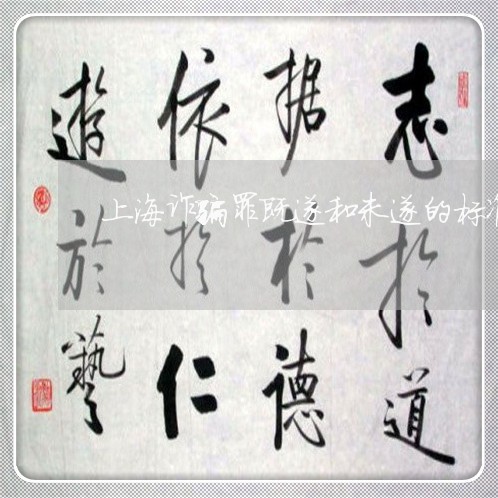 志於道
据於德
依於仁
遊於藝
上海诈骗罪既遂和未遂的标